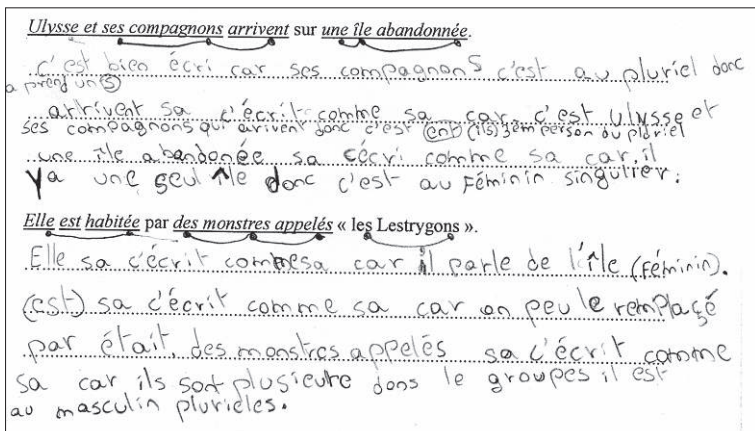 Ulysse et ses compagnons arrivent sur une île abandonnée.
c'est bien écri car ses compagnons c'est au pluriel donc
a prend un (s)
arrivent sa c'écrit comme sa car, c'est Ulysse et
ses compagnons qui arivent donc c'est (ent) (ils) 3em person du pluriel
une île abandonée sa cécri comme sa car, il
ya une seul île donc c'est au féminin singulier.
Elle est habitée par des monstres appelés « les Lestrygons ».
Elle sa c'écrit comme sa car il parle de l'île (féminin).
(est) sa c'écrit comme sa car on peu le remplaçé
par était. des monstres appelés sa c'écrit comme
sa car ils sont plusieure dans le groupes il est
au masculin plurieles.